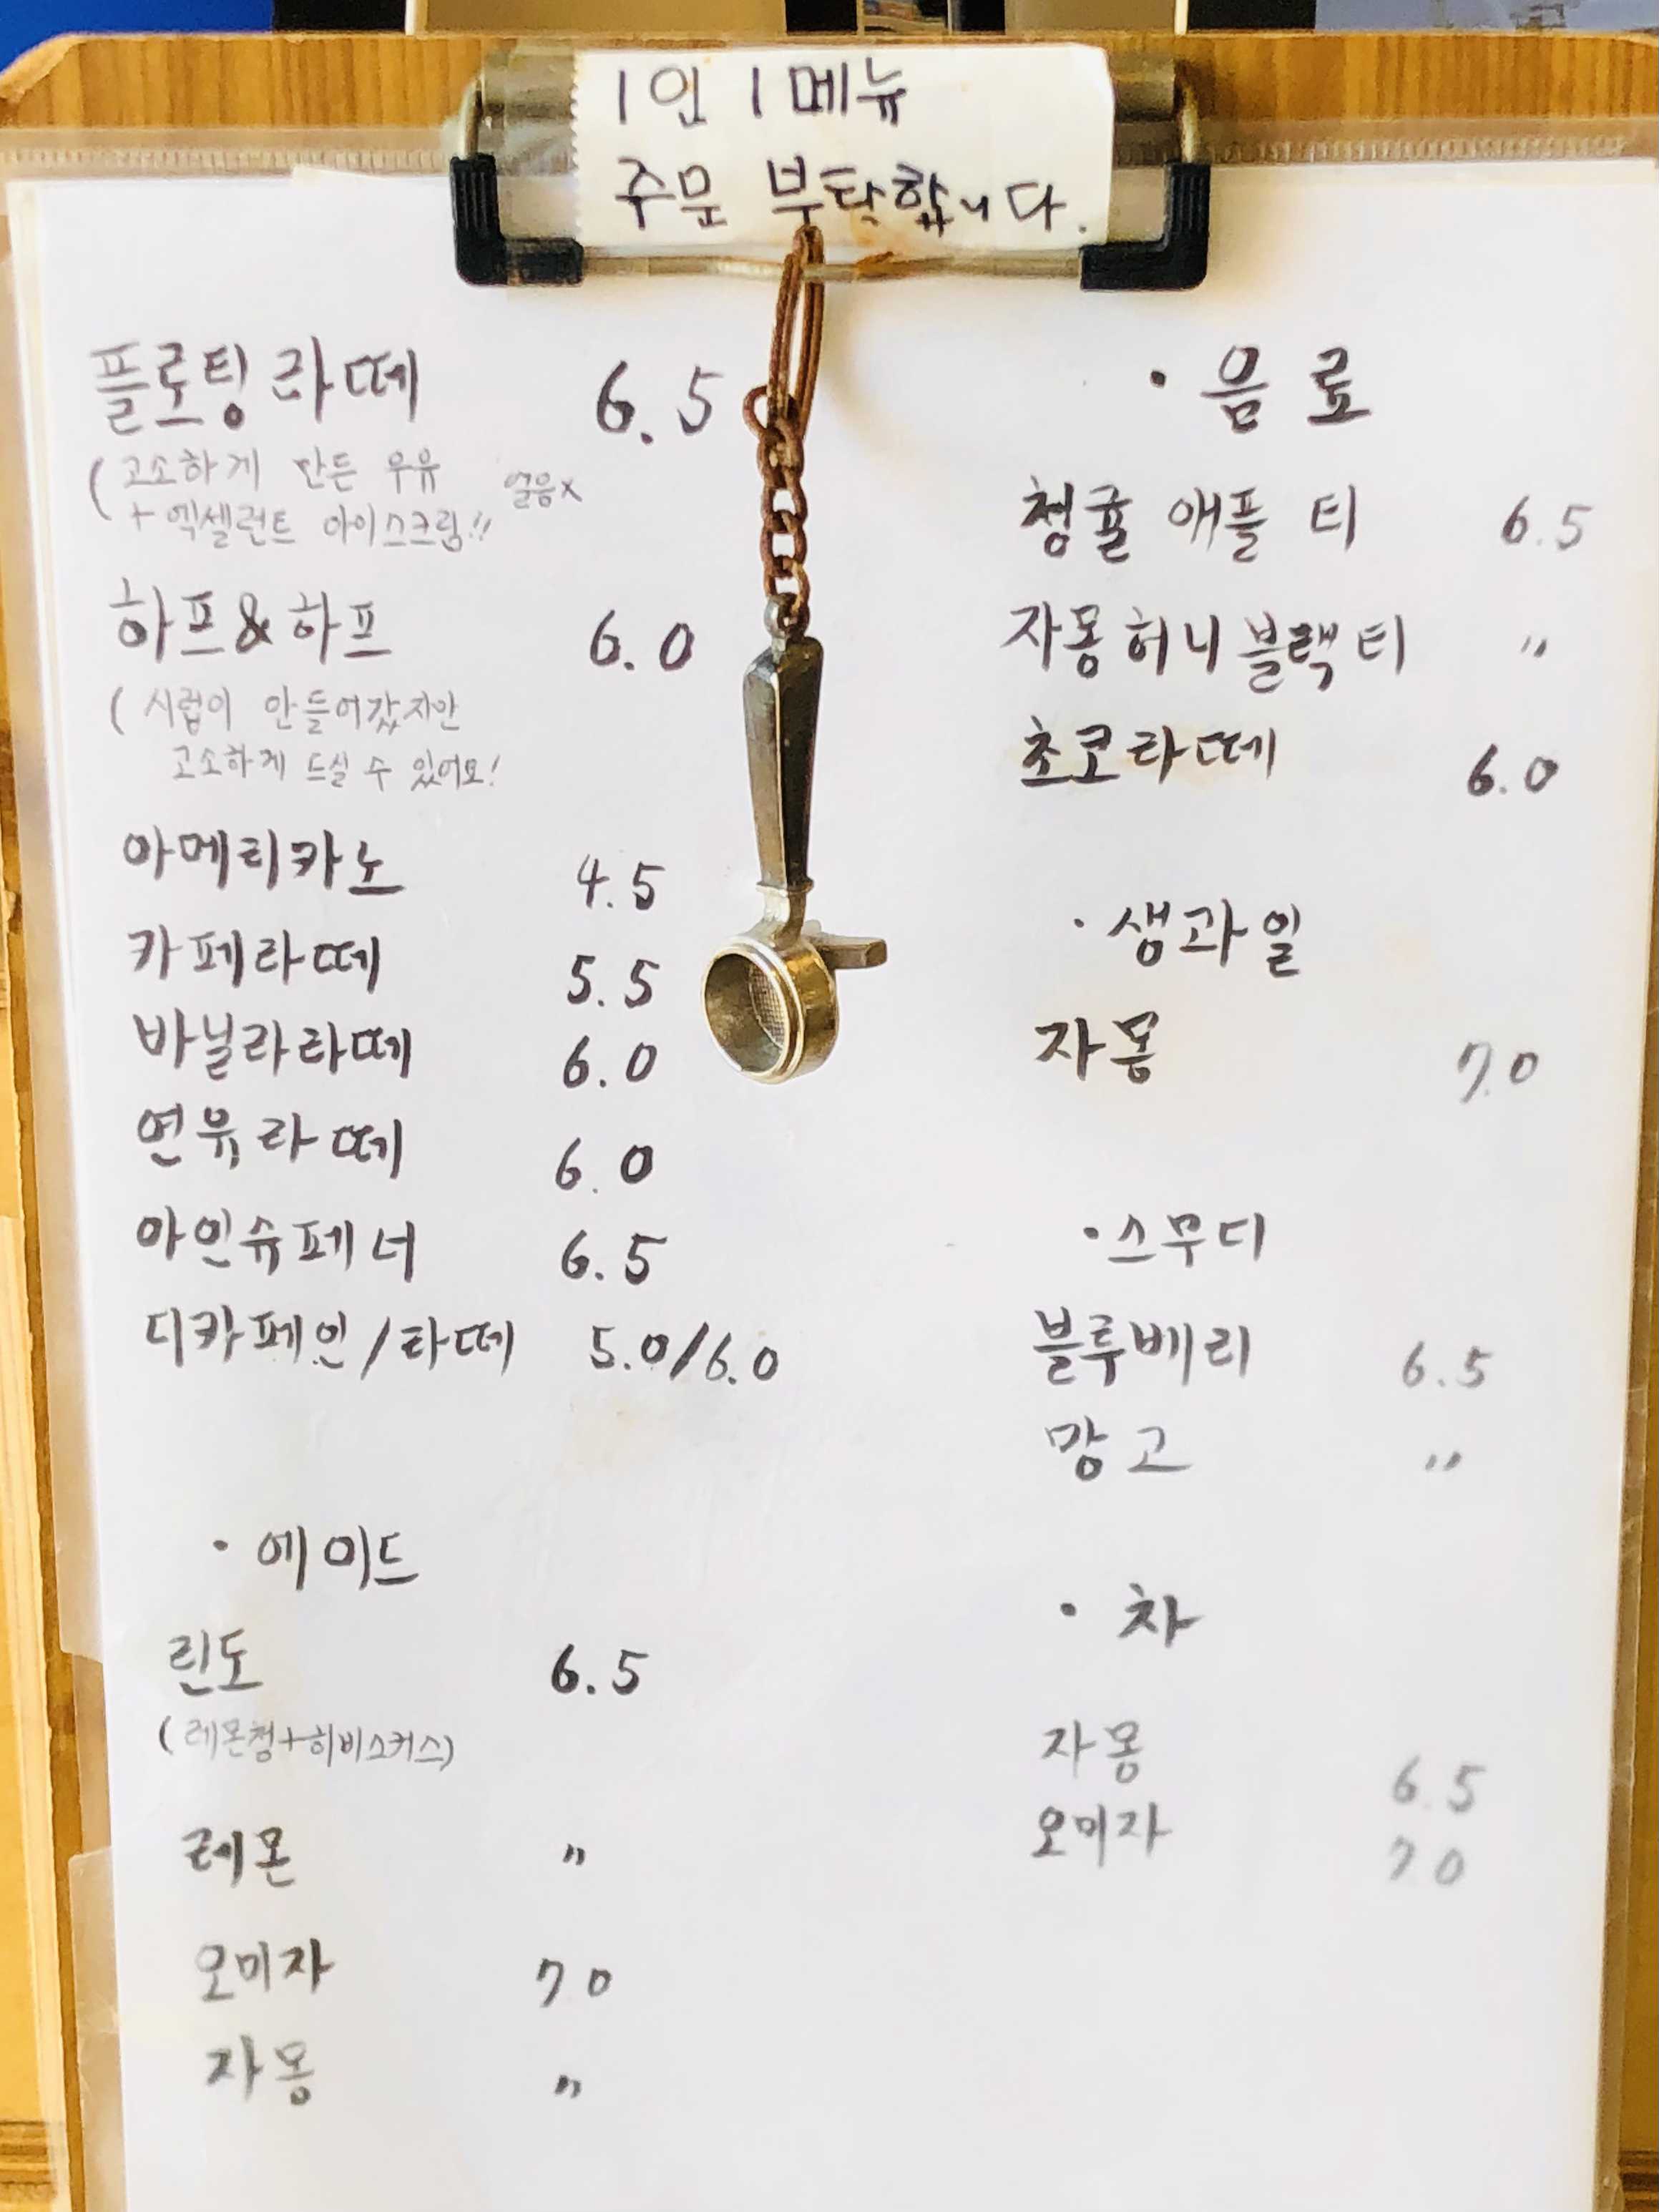 1인 1메뉴
주문 부탁합니다.
플로팅라떼 6.5
(고소하게 만든 우유 얼음x
+ 엑셀런트 아이스크림!!
하프&하프 6.0
(시럽이 안들어갔지만
고소하게 드실 수 있어요!
아메리카노 4.5
카페라떼 5.5
바닐라라떼 6.0
연유라떼 6.0
아인슈페너 6.5
디카페인/라떼 5.0/6.0
· 에이드
린도 6.5
(레몬청+히비스커스)
레몬 〃
오미자 7.0
자몽 〃
· 음료
청귤 애플 티 6.5
자몽허니블랙티 〃
초코라떼 6.0
· 생과일
자몽 7.0
· 스무디
블루베리 6.5
망고 〃
· 차
자몽 6.5
오미자 7.0